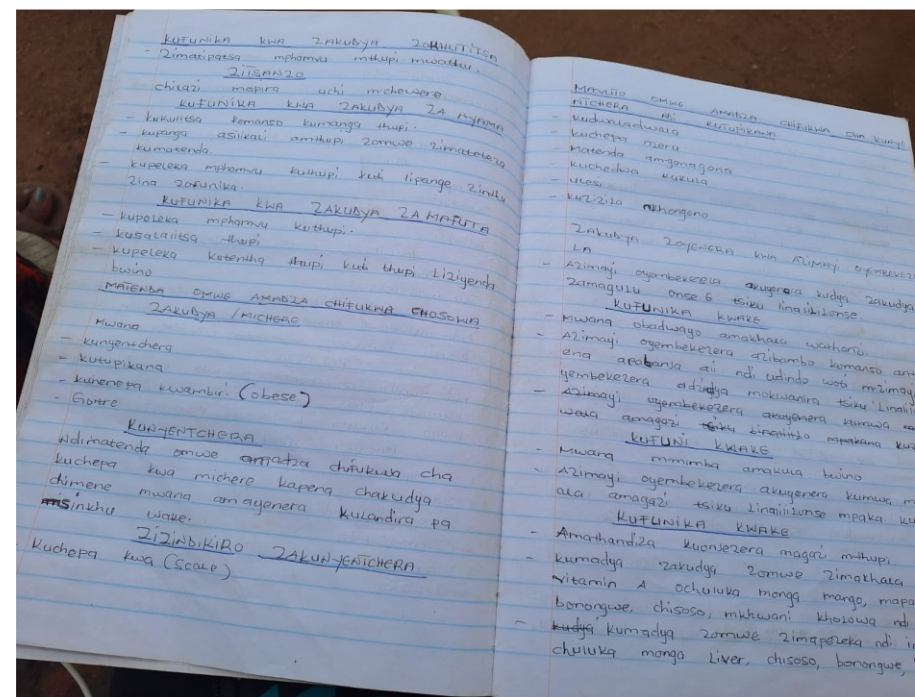 KUFUNIKA KWA ZAKUDYA ZOKHUTITSA
- Zimatipatsa mphamvu mthupi mwathu.
ZIISANZO
chilazi mapira uchi mchewere
KUFUNIKA KWA ZAKUDYA ZA NYAMA
- kukulitsa komanso kumanga thupi.
- kupanga asilikali amthupi zomwe zimateteza
kumatenda
- kupeleka mphamvu kuthupi kuti lipange zinthu
zina zofunika.
KUFUNIKA KWA ZAKUDYA ZA MAFUTA
- kupeleka mphamvu kuthupi.
- kusalalitsa thupi
- kupeleka kutentha thupi kuti thupi liziyenda
bwino
MATENDA OMWE AMABZA CHIFUKWA CHOSOWA
ZAKUDYA / MICHERE
Mwana
- kunyentchera
- kutupikana
- kunenepa kwambiri (obese)
- Goitre
KUNYENTCHERA
Ndimatenda omwe amadza chifukwa cha
kuchepa kwa michere kapena chakudya
chimene mwana amayenera kulandira pa
msinkhu wake.
ZIZINDIKIRO ZAKUNYENTCHERA
Kuchepa kwa (Scale)
MAVUTO OMWE AMABZA CHIFUKWA cha
MICHERA NDI KUTUPIKANA
- kudwaladwala
- kuchepa nzeru
- Matenda amgonagona
- kuchedwa kukula
- ulesi
- kuzizila nkhongono
Zakudya zoyenera kwa Azimayi
LA
- Azimayi oyembekezera akuyenera kudya zakudya
zamagulu onse 6 tsiku linalilonse.
KUFUNIKA KWAKE
- Mwana obadwayo amakhala wathanzi.
- Azimayi oyembekezera azibambo komanso
ena apabanja ali ndi udindo woti mzimayi
yembekezera adzidya mokwanira tsiku
- Azimayi oyembekezera akuyenera kumwa
wala amagazi tsiku mpakana
KUFUNI KWAKE
- Mwana mmimba amakula bwino
- Azimayi oyembekezera akuyenera kumwa
ala amagazi tsiku linalilonse mpaka
KUFUNIKA KWAKE
- Amathandiza kuonjezera magazi mthupi.
- kumadya zakudya zomwe zimakhala
vitamin A ochuluka monga mango,
bonongwe, chisoso, mkhwani kholowa ndi
- kudya kumadya zomwe zimapeleka ndi
chuluka monga Liver, chisoso, bonongwe,